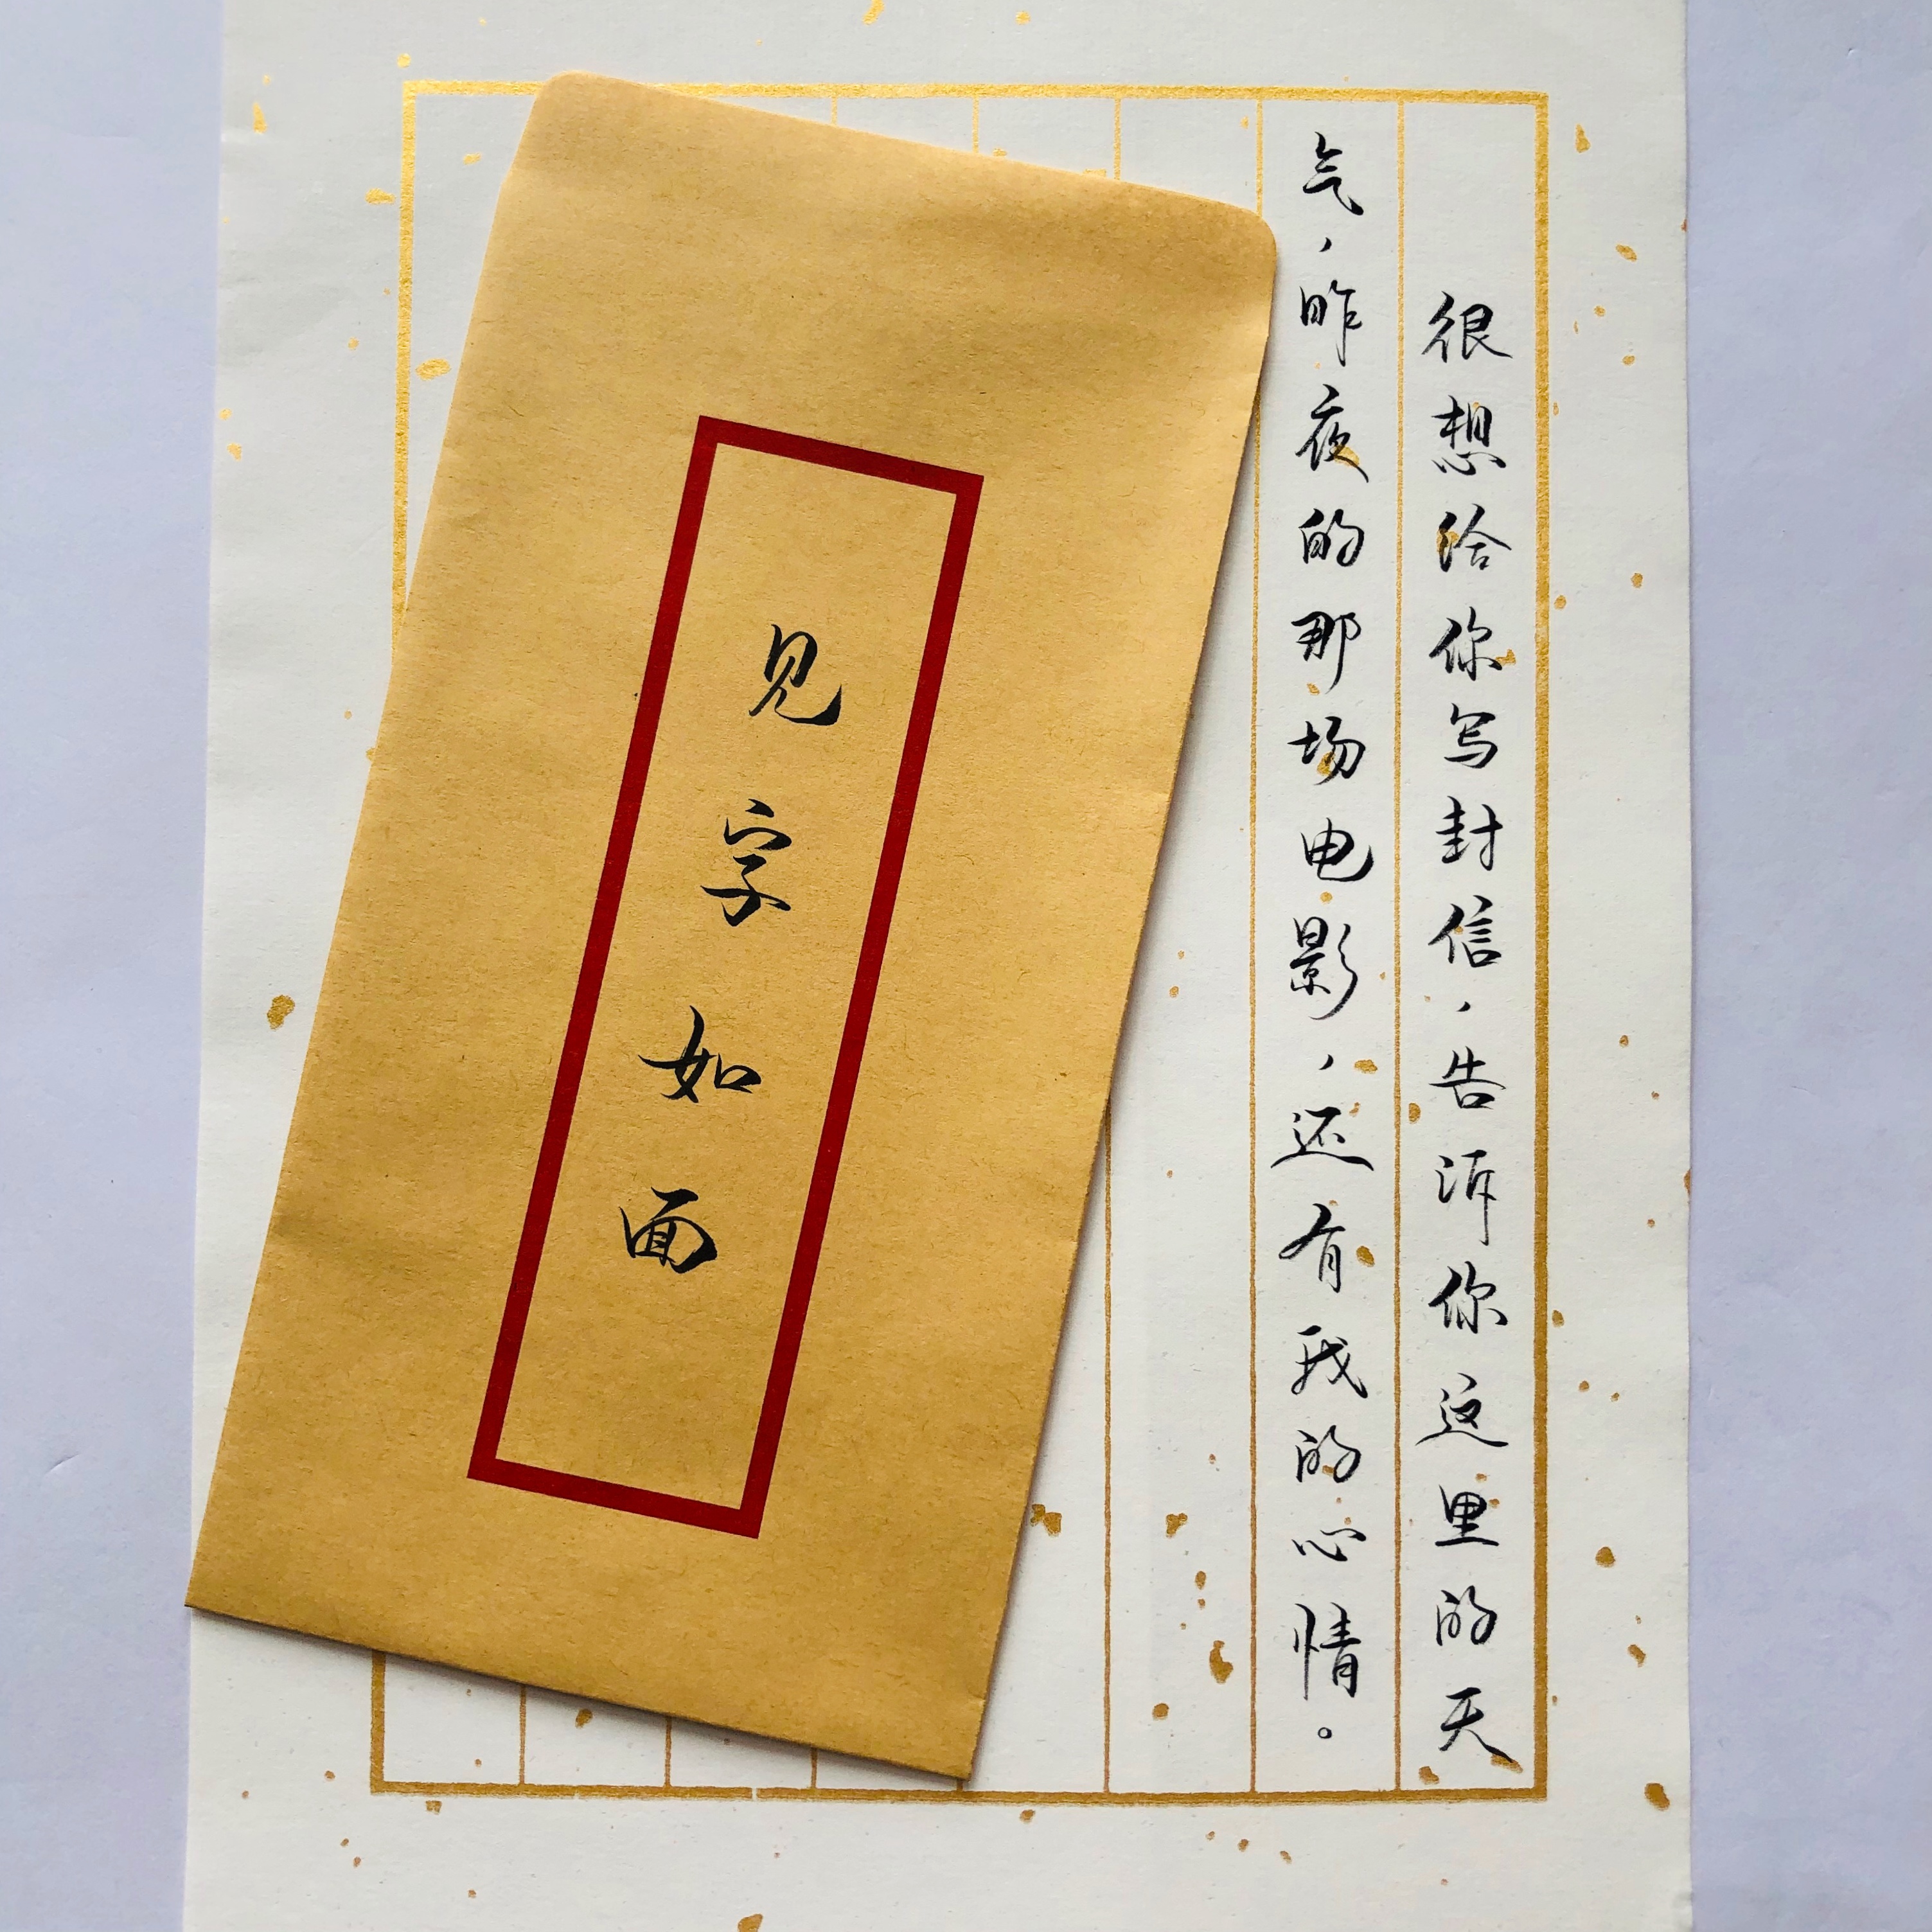 很想给你写封信，告诉你这里的天
气，昨夜的那场电影，还有我的心情。
见字如面